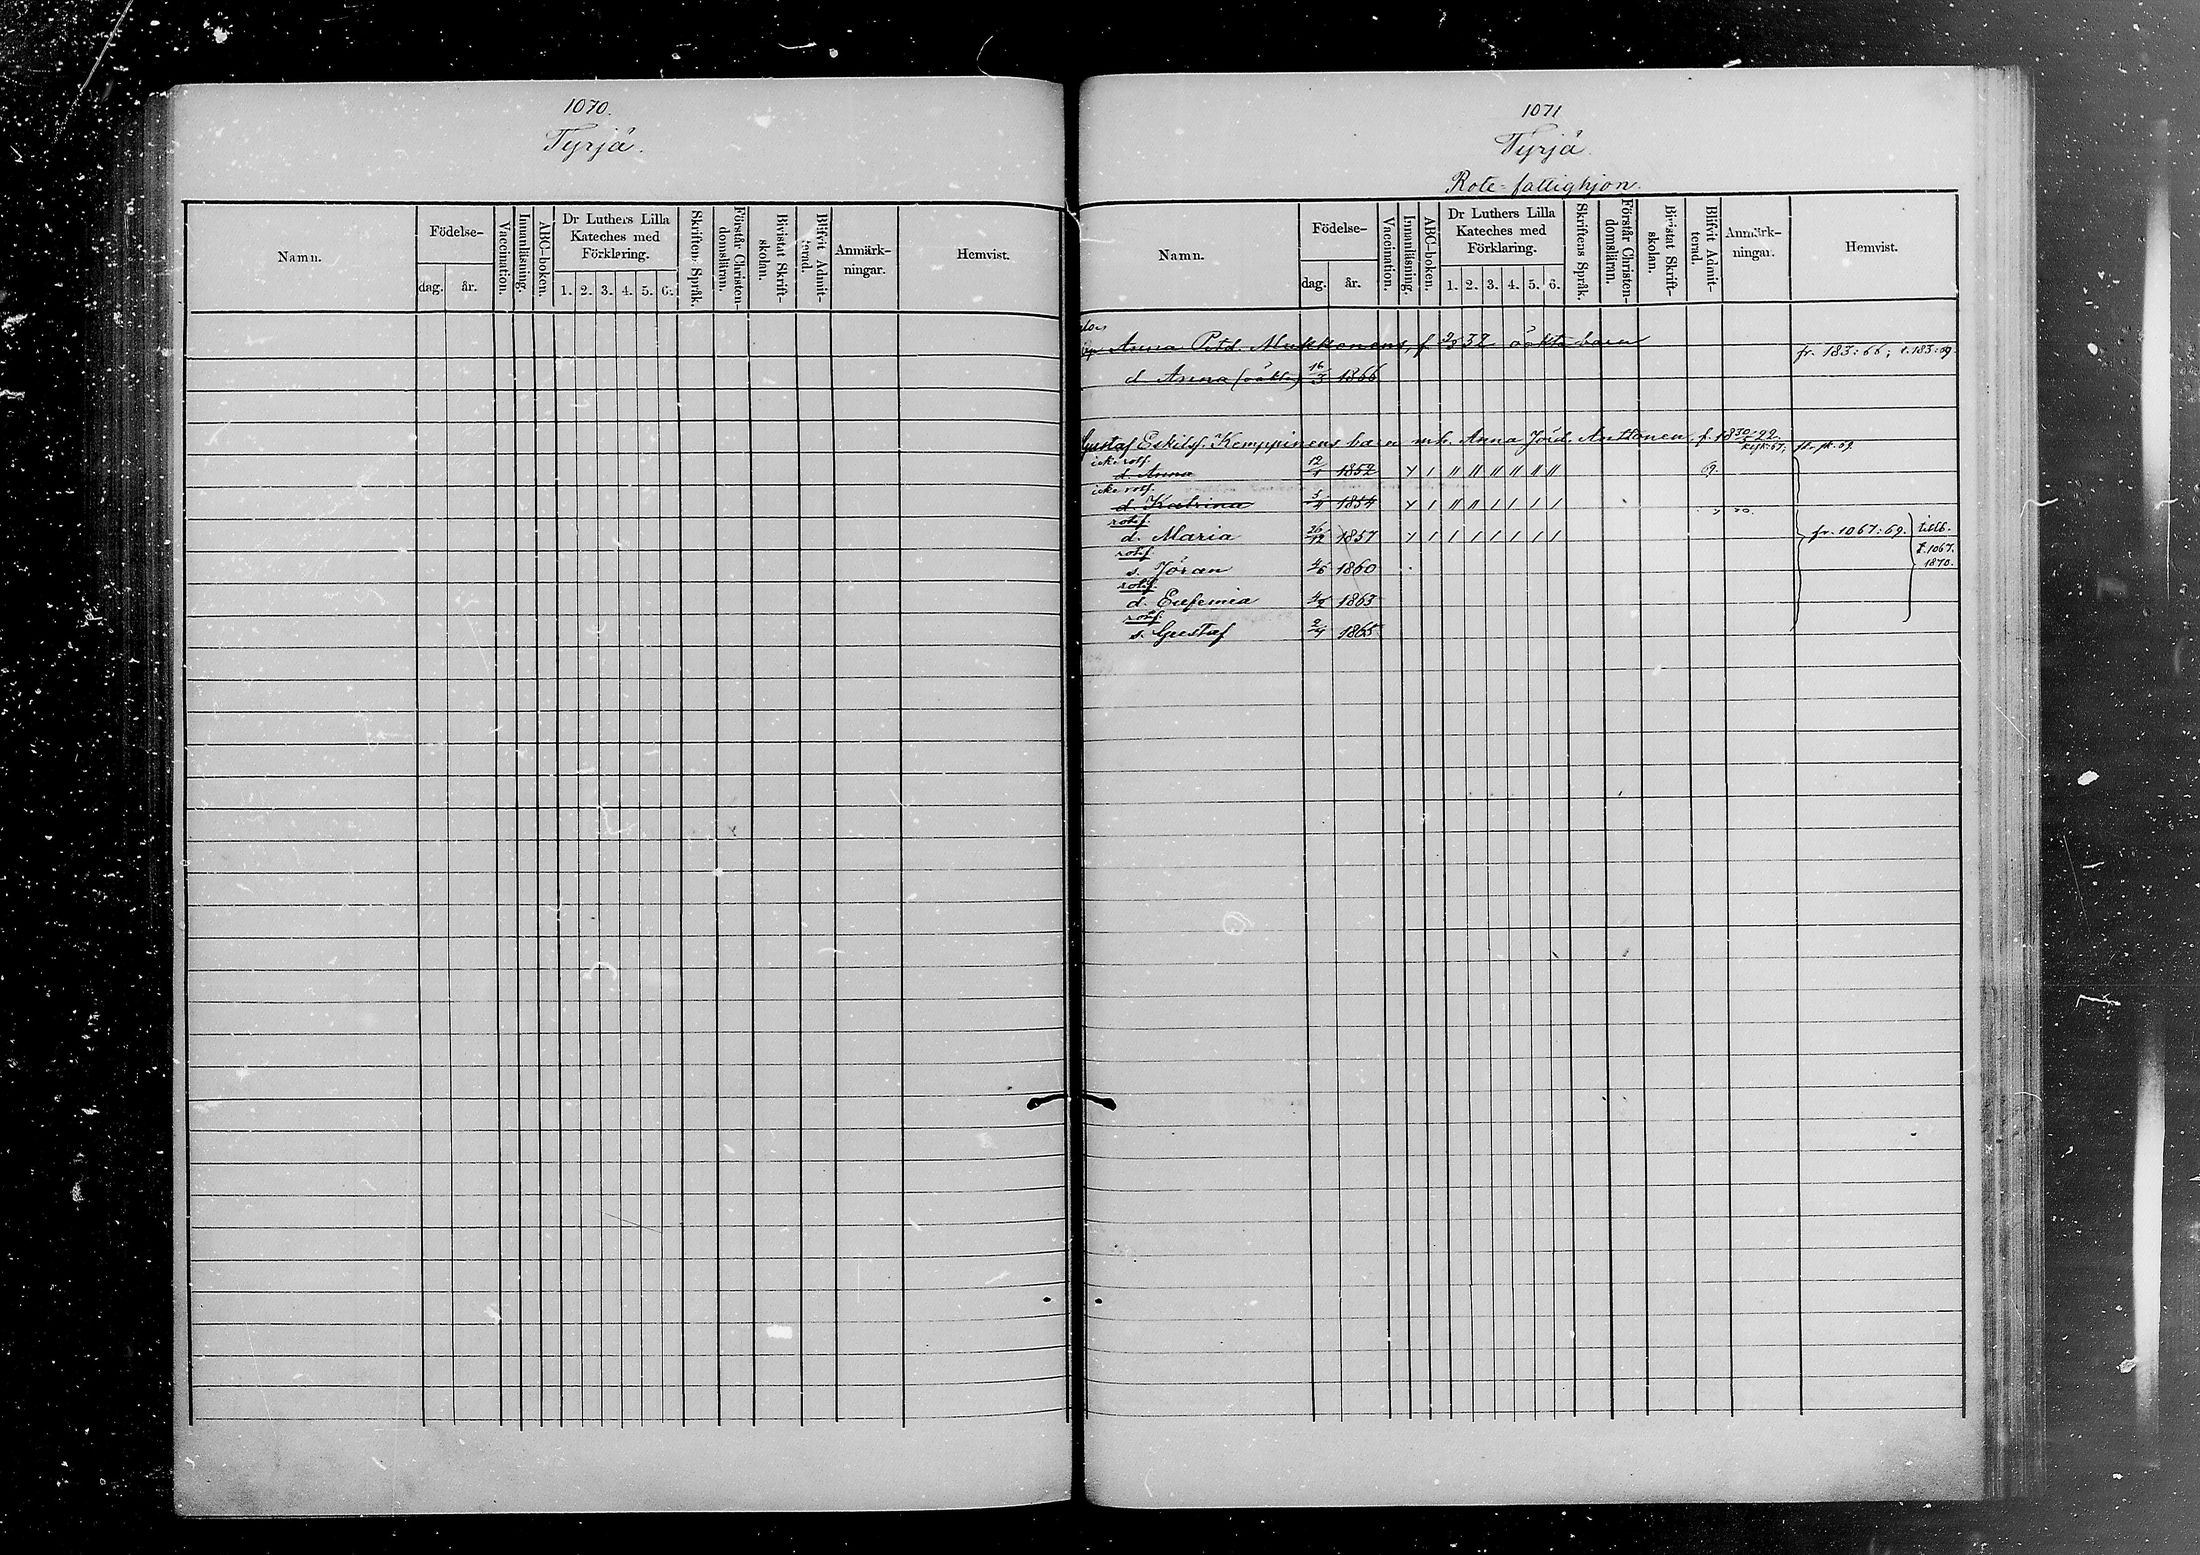 1070.
Tyrjä.
Namn.
Födelse-
dag. år.
Vaccination.
Innanläsning.
ABC-boken.
Dr Luthers Lilla
Kateches med
Förklaring.
1. 2. 3. 4. 5. 6.
Skriftens Språk.
Förstår Christen-
domsläran.
Bivistat Skrift-
skolan.
Blifvit Admit-
terad.
Anmärk-
ningar.
Hemvist.
1071
Tyrjä
Rote-fattighjon.
Namn.
Födelse-
dag. år.
Vaccination.
Innanläsning.
ABC-boken.
Dr Luthers Lilla
Kateches med
Förklaring.
1. 2. 3. 4. 5. 6.
Skriftens Språk.
Förstår Christen-
domsläran.
Bivistat Skrift-
skolan.
Blifvit Admit-
terad.
Anmärk-
ningar.
Hemvist.
Anna Petd. Mukkonens, f. 32 oäkta barn
fr. 183:66; t. 183:69
d. Anna (oäkta) 16/3 1866
Gustaf Eskilsf. Kemppinens barn m h. Anna Jörd. Anttonen f. 18 30/5 22
icke rotf.
d. Anna 12/1 1852 69.
icke rotf.
d. Katrina 1854
rotf.
d. Maria 26/12 1857 fr. 1067:69. tillb.
t. 1067.
1870.
rotf.
s. Jöran 4/6 1860
rotf.
d. Eufemia 1863
rotf.
s. Gustaf 2/4 1865